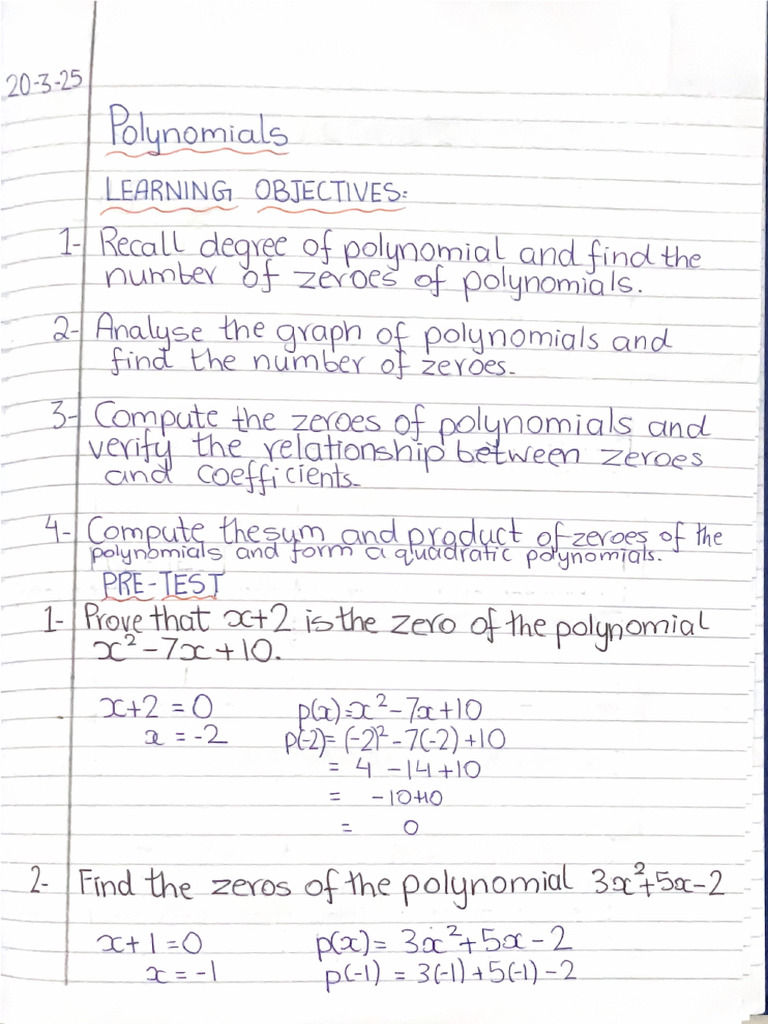 20-3-25
Polynomials
LEARNING OBJECTIVES:
1- Recall degree of polynomial and find the
number of zeroes of polynomials.
2- Analyse the graph of polynomials and
find the number of zeroes.
3- Compute the zeroes of polynomials and
verify the relationship between zeroes
and coefficients.
4- Compute the sum and product of zeroes of the
polynomials and form a quadratic polynomials.
PRE-TEST
1- Prove that x+2 is the zero of the polynomial
x²-7x+10.
x+2 = 0 p(x)=x²-7x+10
x = -2 p(-2)= (-2)²-7(-2)+10
= 4 -14+10
= -10+10
= 0
2- Find the zeros of the polynomial 3x²+5x-2
x+1=0 p(x)= 3x²+5x-2
x = -1 p(-1) = 3(-1)+5(-1)-2